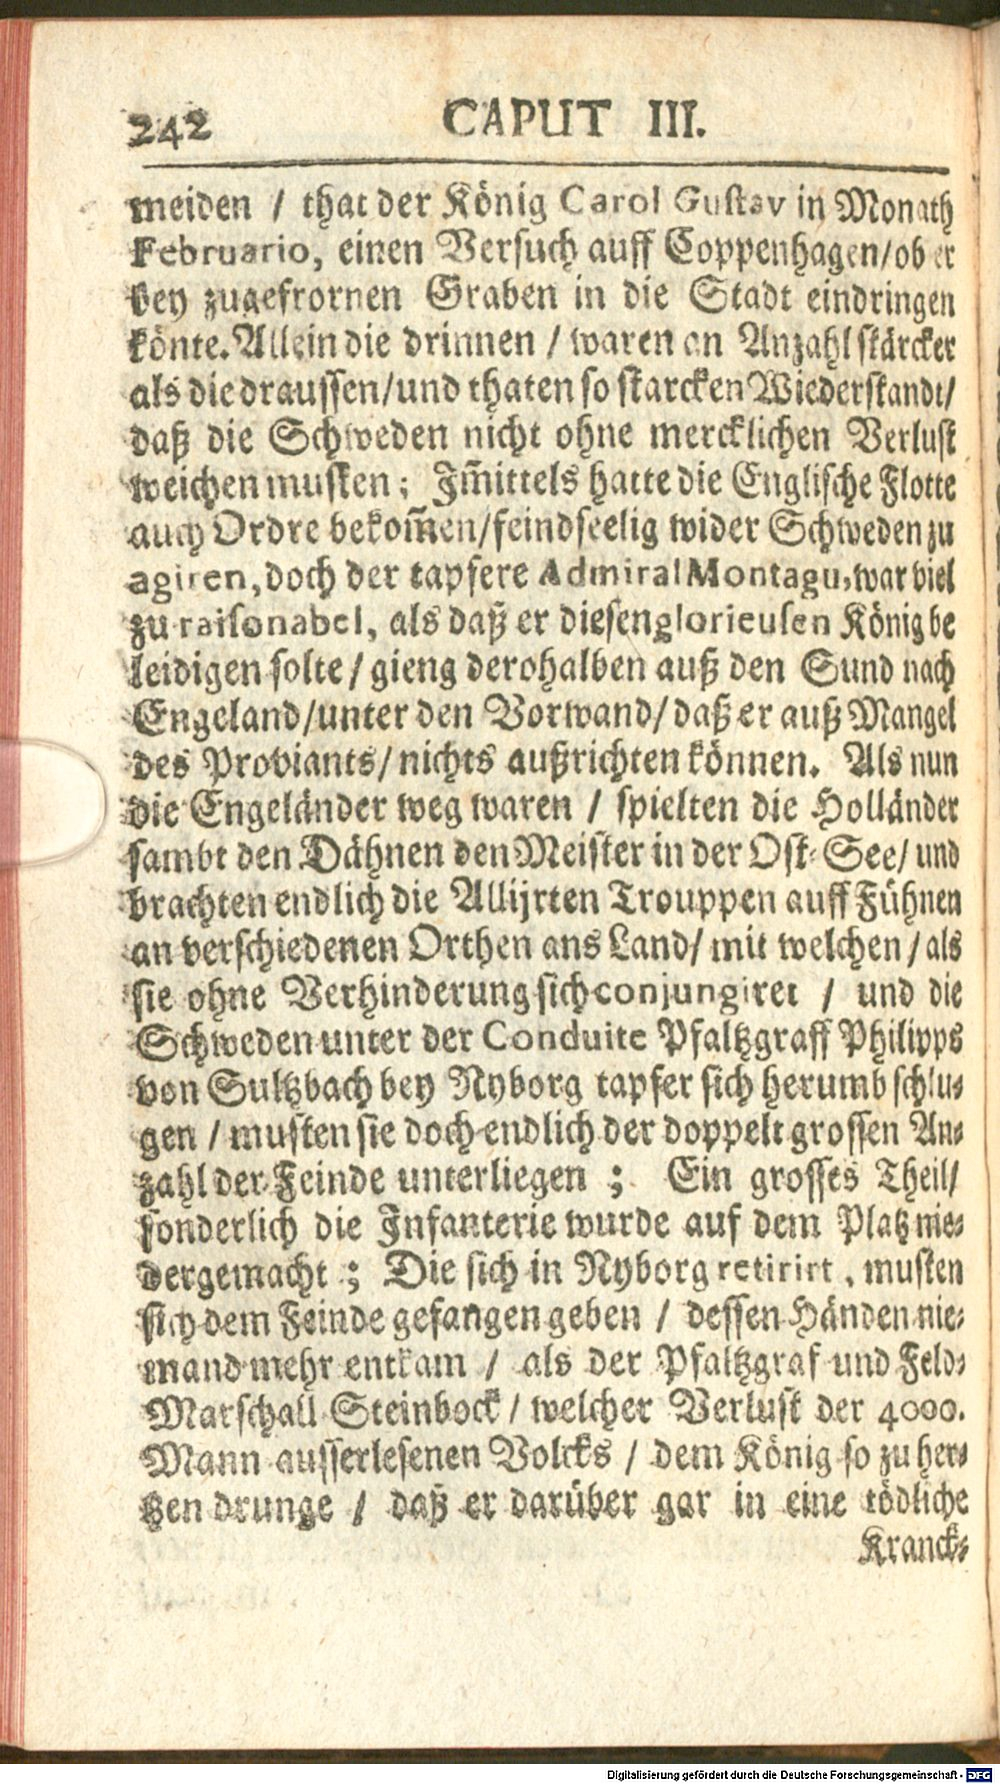 242 CAPUT III.
meiden / that der König Carol Gustav in Monath
Februario, einen Versuch auff Coppenhagen/ob er
bey zugefrornen Graben in die Stadt eindringen
könte. Allein die drinnen / waren an Anzahl stärcker
als die draussen/und thaten so starcken Wiederstandt/
daß die Schweden nicht ohne mercklichen Verlust
weichen musten; Im̃ittels hatte die Englische Flotte
auch Ordre bekom̃en/feindseelig wider Schweden zu
agiren, doch der tapfere Admiral Montagu, war viel
zu raisonabel, als daß er diesen glorieusen König be
leidigen solte / gieng derohalben auß den Sund nach
Engeland/unter den Vorwand/ daß er auß Mangel
des Proviants/ nichts außrichten können. Als nun
die Engeländer weg waren / spielten die Holländer
sambt den Dähnen den Meister in der Ost-See/ und
brachten endlich die Allijrten Trouppen auff Fühnen
an verschiedenen Orthen ans Land/ mit welchen / als
sie ohne Verhinderung sich conjungiret / und die
Schweden unter der Conduite Pfaltzgraff Philipps
von Sultzbach bey Nyborg tapfer sich herumb schlu-
gen / musten sie doch endlich der doppelt grossen An-
zahl der Feinde unterliegen ; Ein grosses Theil/
sonderlich die Infanterie wurde auf dem Platz nie-
dergemacht ; Die sich in Nyborg retirirt, musten
sich dem Feinde gefangen geben / dessen Händen nie-
mand mehr entkam / als der Pfaltzgraf und Feld-
Marschall Steinbock / welcher Verlust der 4000.
Mann ausserlesenen Volcks / dem König so zu her-
tzen drunge / daß er darüber gar in eine tödliche
Kranck-
Digitalisierung gefördert durch die Deutsche Forschungsgemeinschaft - DFG